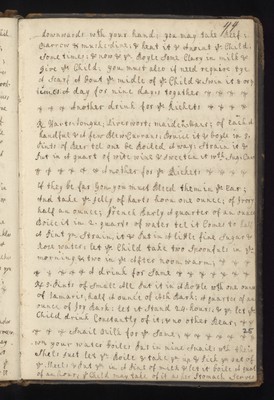 49
downwards with your hand; you may take Beef
marrow & muskadine; & heat it & anoint ye Child
some times; & now & yn Boyle some Clary in milk &
give ye Child; you must also if need require tye
A Seaf A Bout ye midle of ye Child & Swin it 3 or 4
times A day for nine dayes together
Another drink for ye Rickets
Rx Hartstongue, Liverworts, maidenhaire, of each A
handfull & A few New Currans; Bruise it & boyle in 3
Pints of Beer till one be Boiled away; Strain it &
Put in A quart of wite wine & Sweeten it with Sugar Candy
Another for ye Rickets
If they be far Gon you must Bleed them in ye Ear;
And take ye Jelly of harts horn one ounce; of Ivory
half an ounce; french Barly A quarter of an ounce
Boile it in 2 quarts of water till it Comes to half
A Pint yn Strain it & Put in A litle fine Sugar &
Rose water; let ye Child take two Spoonfuls in ye
morning & two in ye After noon warm;
A drink for Same
Rx 6 Pints of Small Ale Put it in A Bottle with one ounce
of Tamaris, half A ounce of Ash Bark; A quarter of an
ounce of for Bark: let it Stand 24 hours, & yn let ye
Child drink Constantly of it; & no other Bear,
25
Snail Milk for ye Same
wn your water boiles Put in nine Snails with their
Shels Just let ym Boile & take ym up & Pick ym out of
ye Shells & Put ym in A Pint of milk & let it boile A quart
of an hour; ye Child may take of it as his Stomack Serves